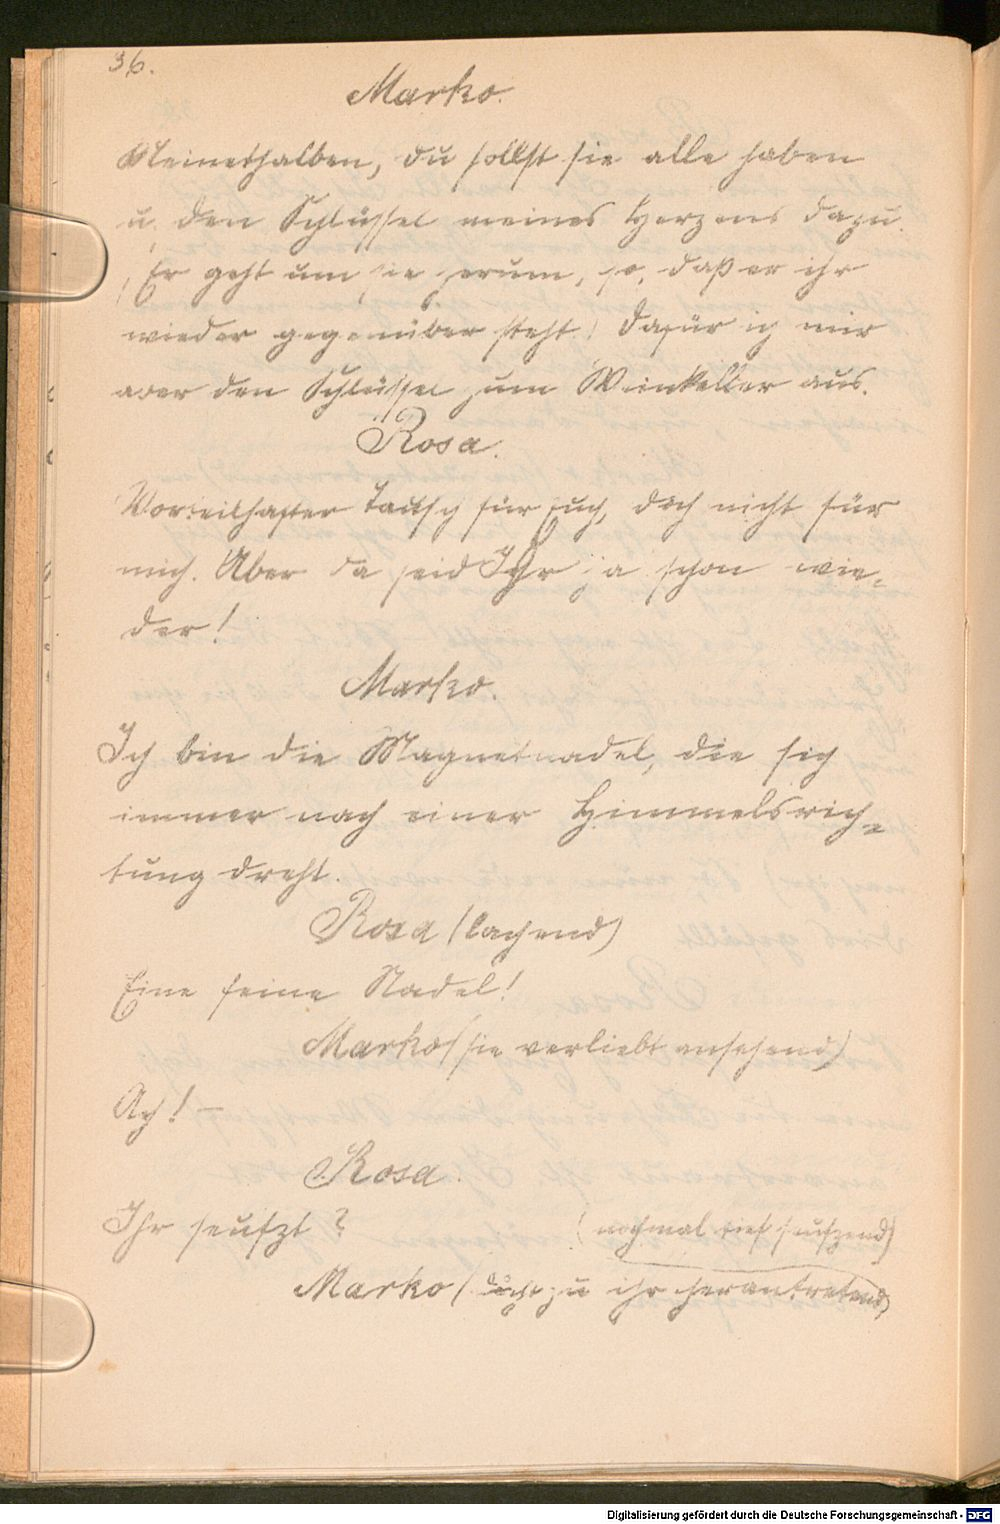 36.
Marko.
Meinethalben, du sollst sie alle haben
u. den Schlüssel meines Herzens dazu.
(Er geht um sie herum, so, daß er ihr
wieder gegenüber steht.) Dafür ich mir
aber den Schlüssel zum Weinkeller aus.
Rosa.
Vorteilhafter Tausch für Euch, doch nicht für
mich. Aber da seid Ihr ja schon wie-
der!
Marko.
Ich bin die Magnetnadel, die sich
immer nach einer Himmelsrich-
tung dreht.
Rosa (lachend)
Eine feine Nadel!
Marko (sie verliebt ansehend)
Ach! –
Rosa.
Ihr seufzt?
(nochmal tief seufzend)
Marko (dicht zu ihr herantretend)
Digitalisierung gefördert durch die Deutsche Forschungsgemeinschaft - DFG